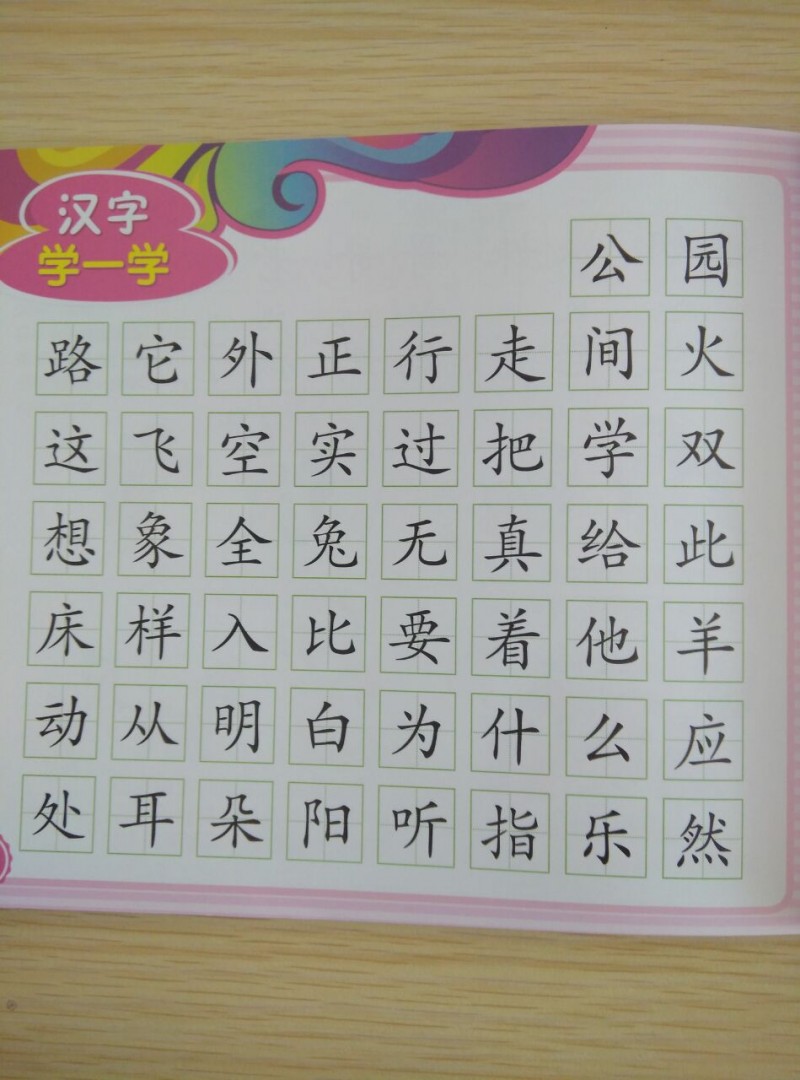 汉字
学一学
公 园
路 它 外 正 行 走 间 火
这 飞 空 实 过 把 学 双
想 象 全 兔 无 真 给 此
床 样 入 比 要 着 他 羊
动 从 明 白 为 什 么 应
处 耳 朵 阳 听 指 乐 然